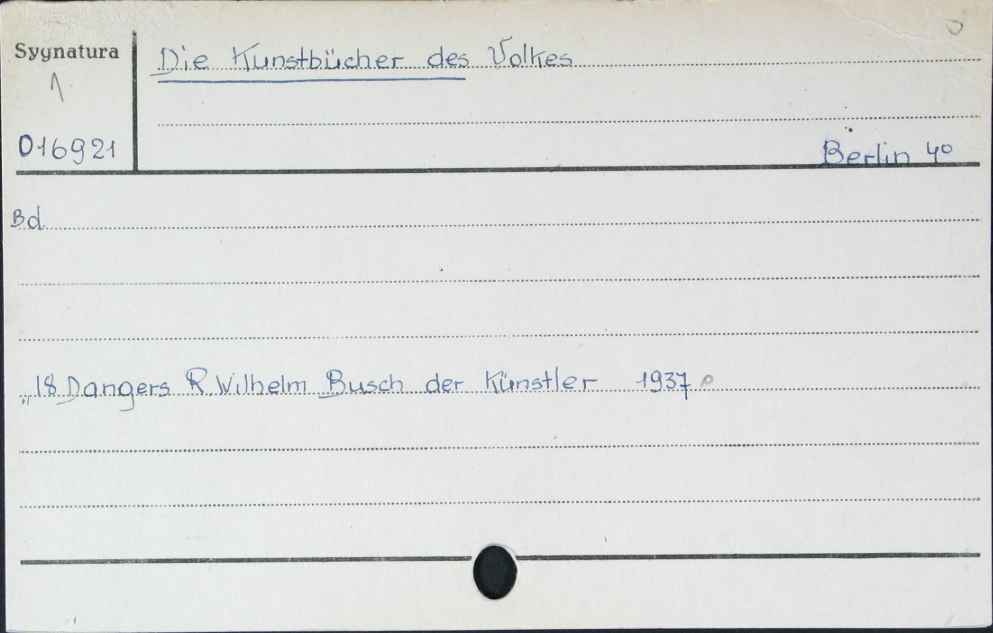 Sygnatura
Die Kunstbücher des Volkes
016921
Berlin 4°
Bd
„ 18 Dangers R. Wilhelm Busch der Künstler 1937